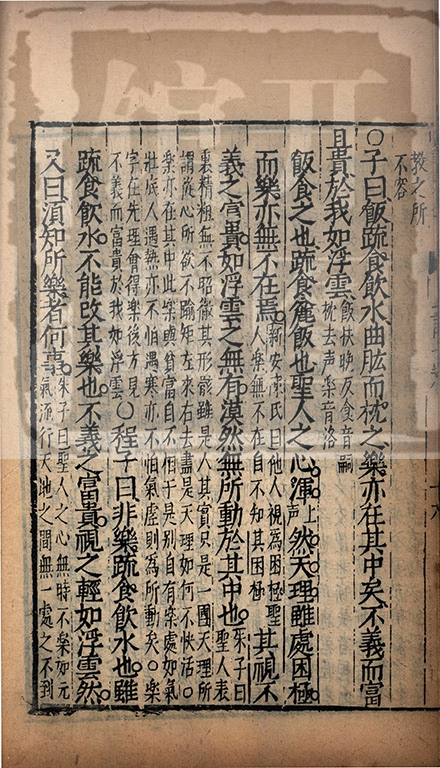 教之所
不容
○子曰飯疏食飲水曲肱而枕之樂亦在其中矣不義而富
且貴於我如浮雲
飯扶晚反食音嗣
枕去声樂音洛
飯食之也疏食麄飯也聖人之心渾
上
声
然天理雖處困極
而樂亦無不在焉
新安陳氏曰他人視為困極聖
人樂無不在自不知其困極
其視不
義之富貴如浮雲之無有漠然無所動於其中也
朱子曰
聖人表
裏精粗無不昭徹其形骸雖是人其實只是一團天理所
謂從心所欲不踰矩左來右去盡是天理如何不快活○
樂亦在其中此樂與貧富自不相干是別自有樂處如氣
壯底人遇熱亦不怕遇寒亦不怕氣虛則為所動矣○樂
字在先理會得樂後方見
不義而富貴於我如浮雲
○程子曰非樂疏食飲水也雖
疏食飲水不能改其樂也不義之富貴視之輕如浮雲然
又曰須知所樂者何事
朱子曰聖人之心無時不樂如元
氣流行天地之間無一處之不到